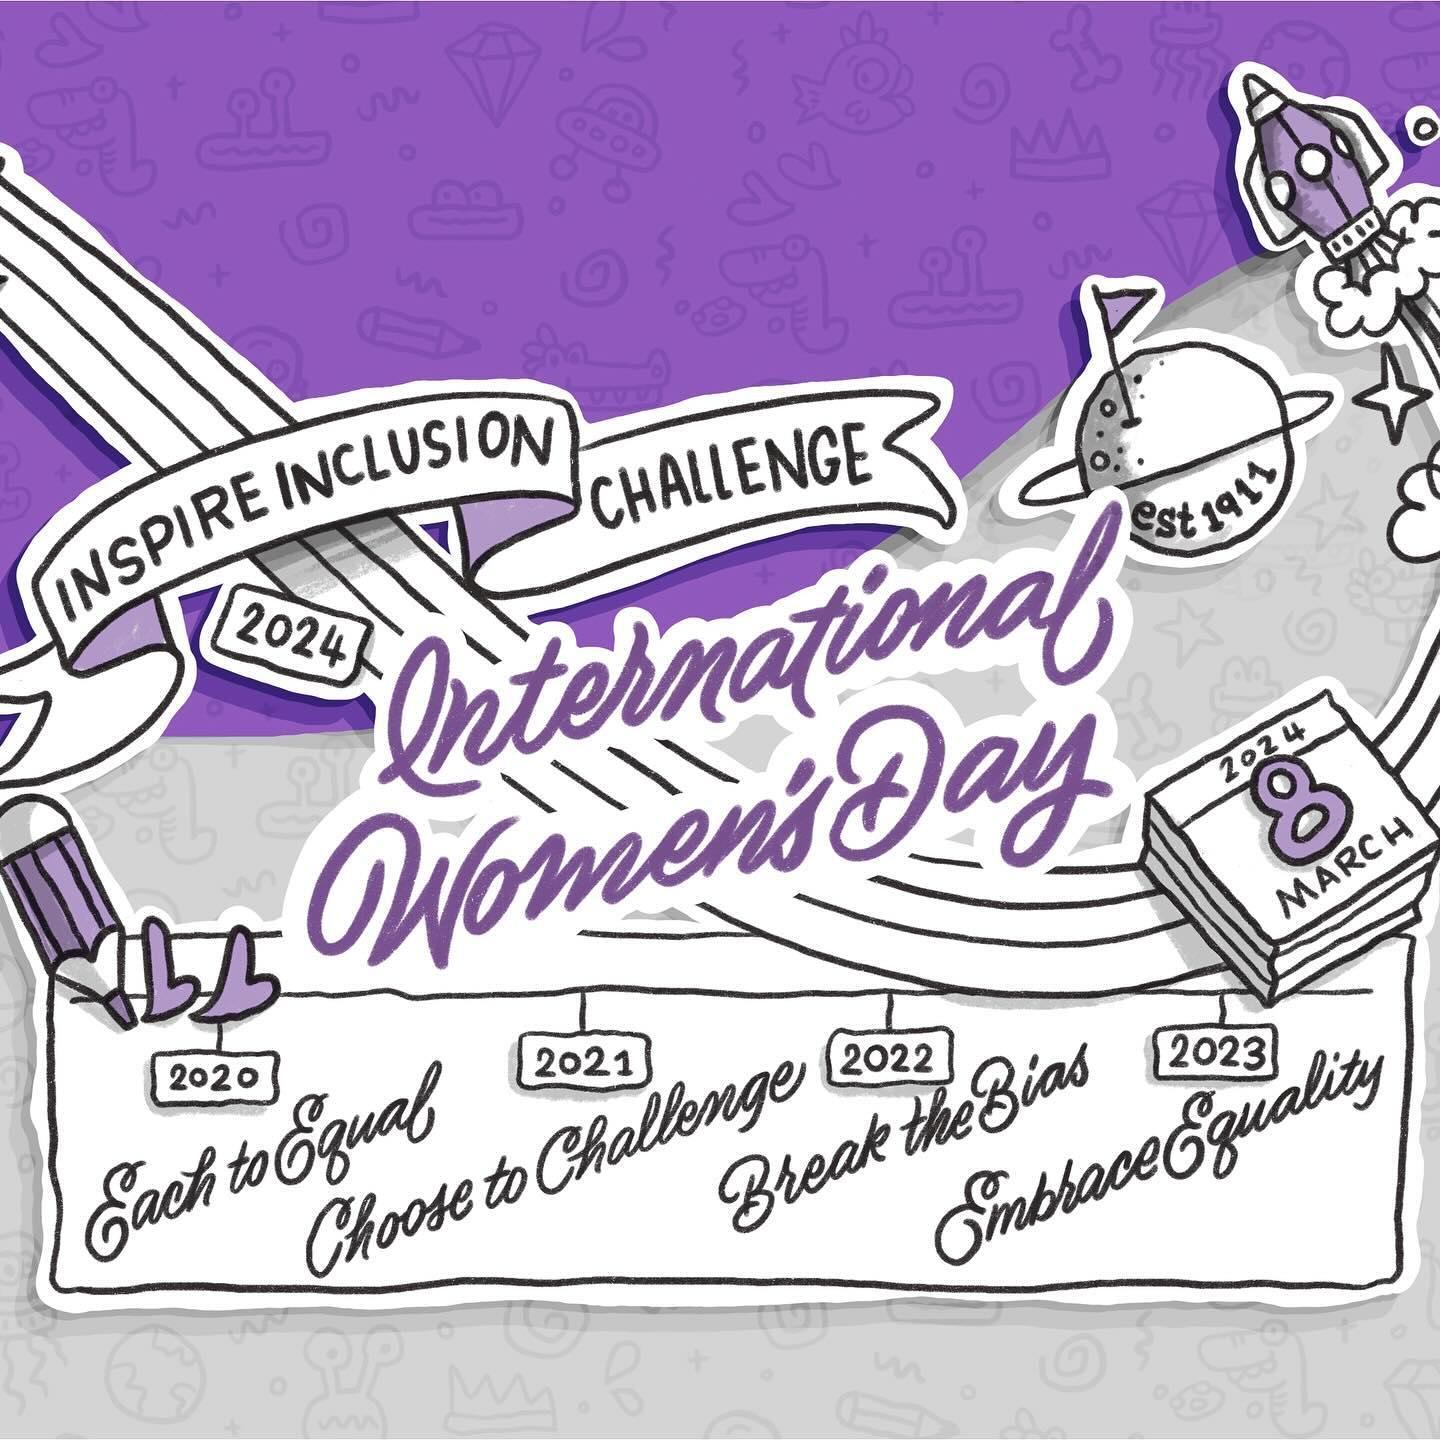 INSPIRE INCLUSION
CHALLENGE
2024
est 1911
International
Women's Day
2024
8
MARCH
2020
Each to Equal
2021
Choose to Challenge
2022
Break the Bias
2023
Embrace Equality